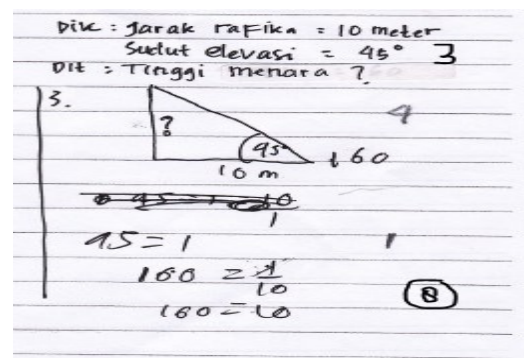 Dik : Jarak rafika = 10 meter
Sudut elevasi = 45° 3
Dit : Tinggi menara ?
3. 4
?
45° 160
10 m
45 = 1 1
160 = 1/10 8
160 = 10